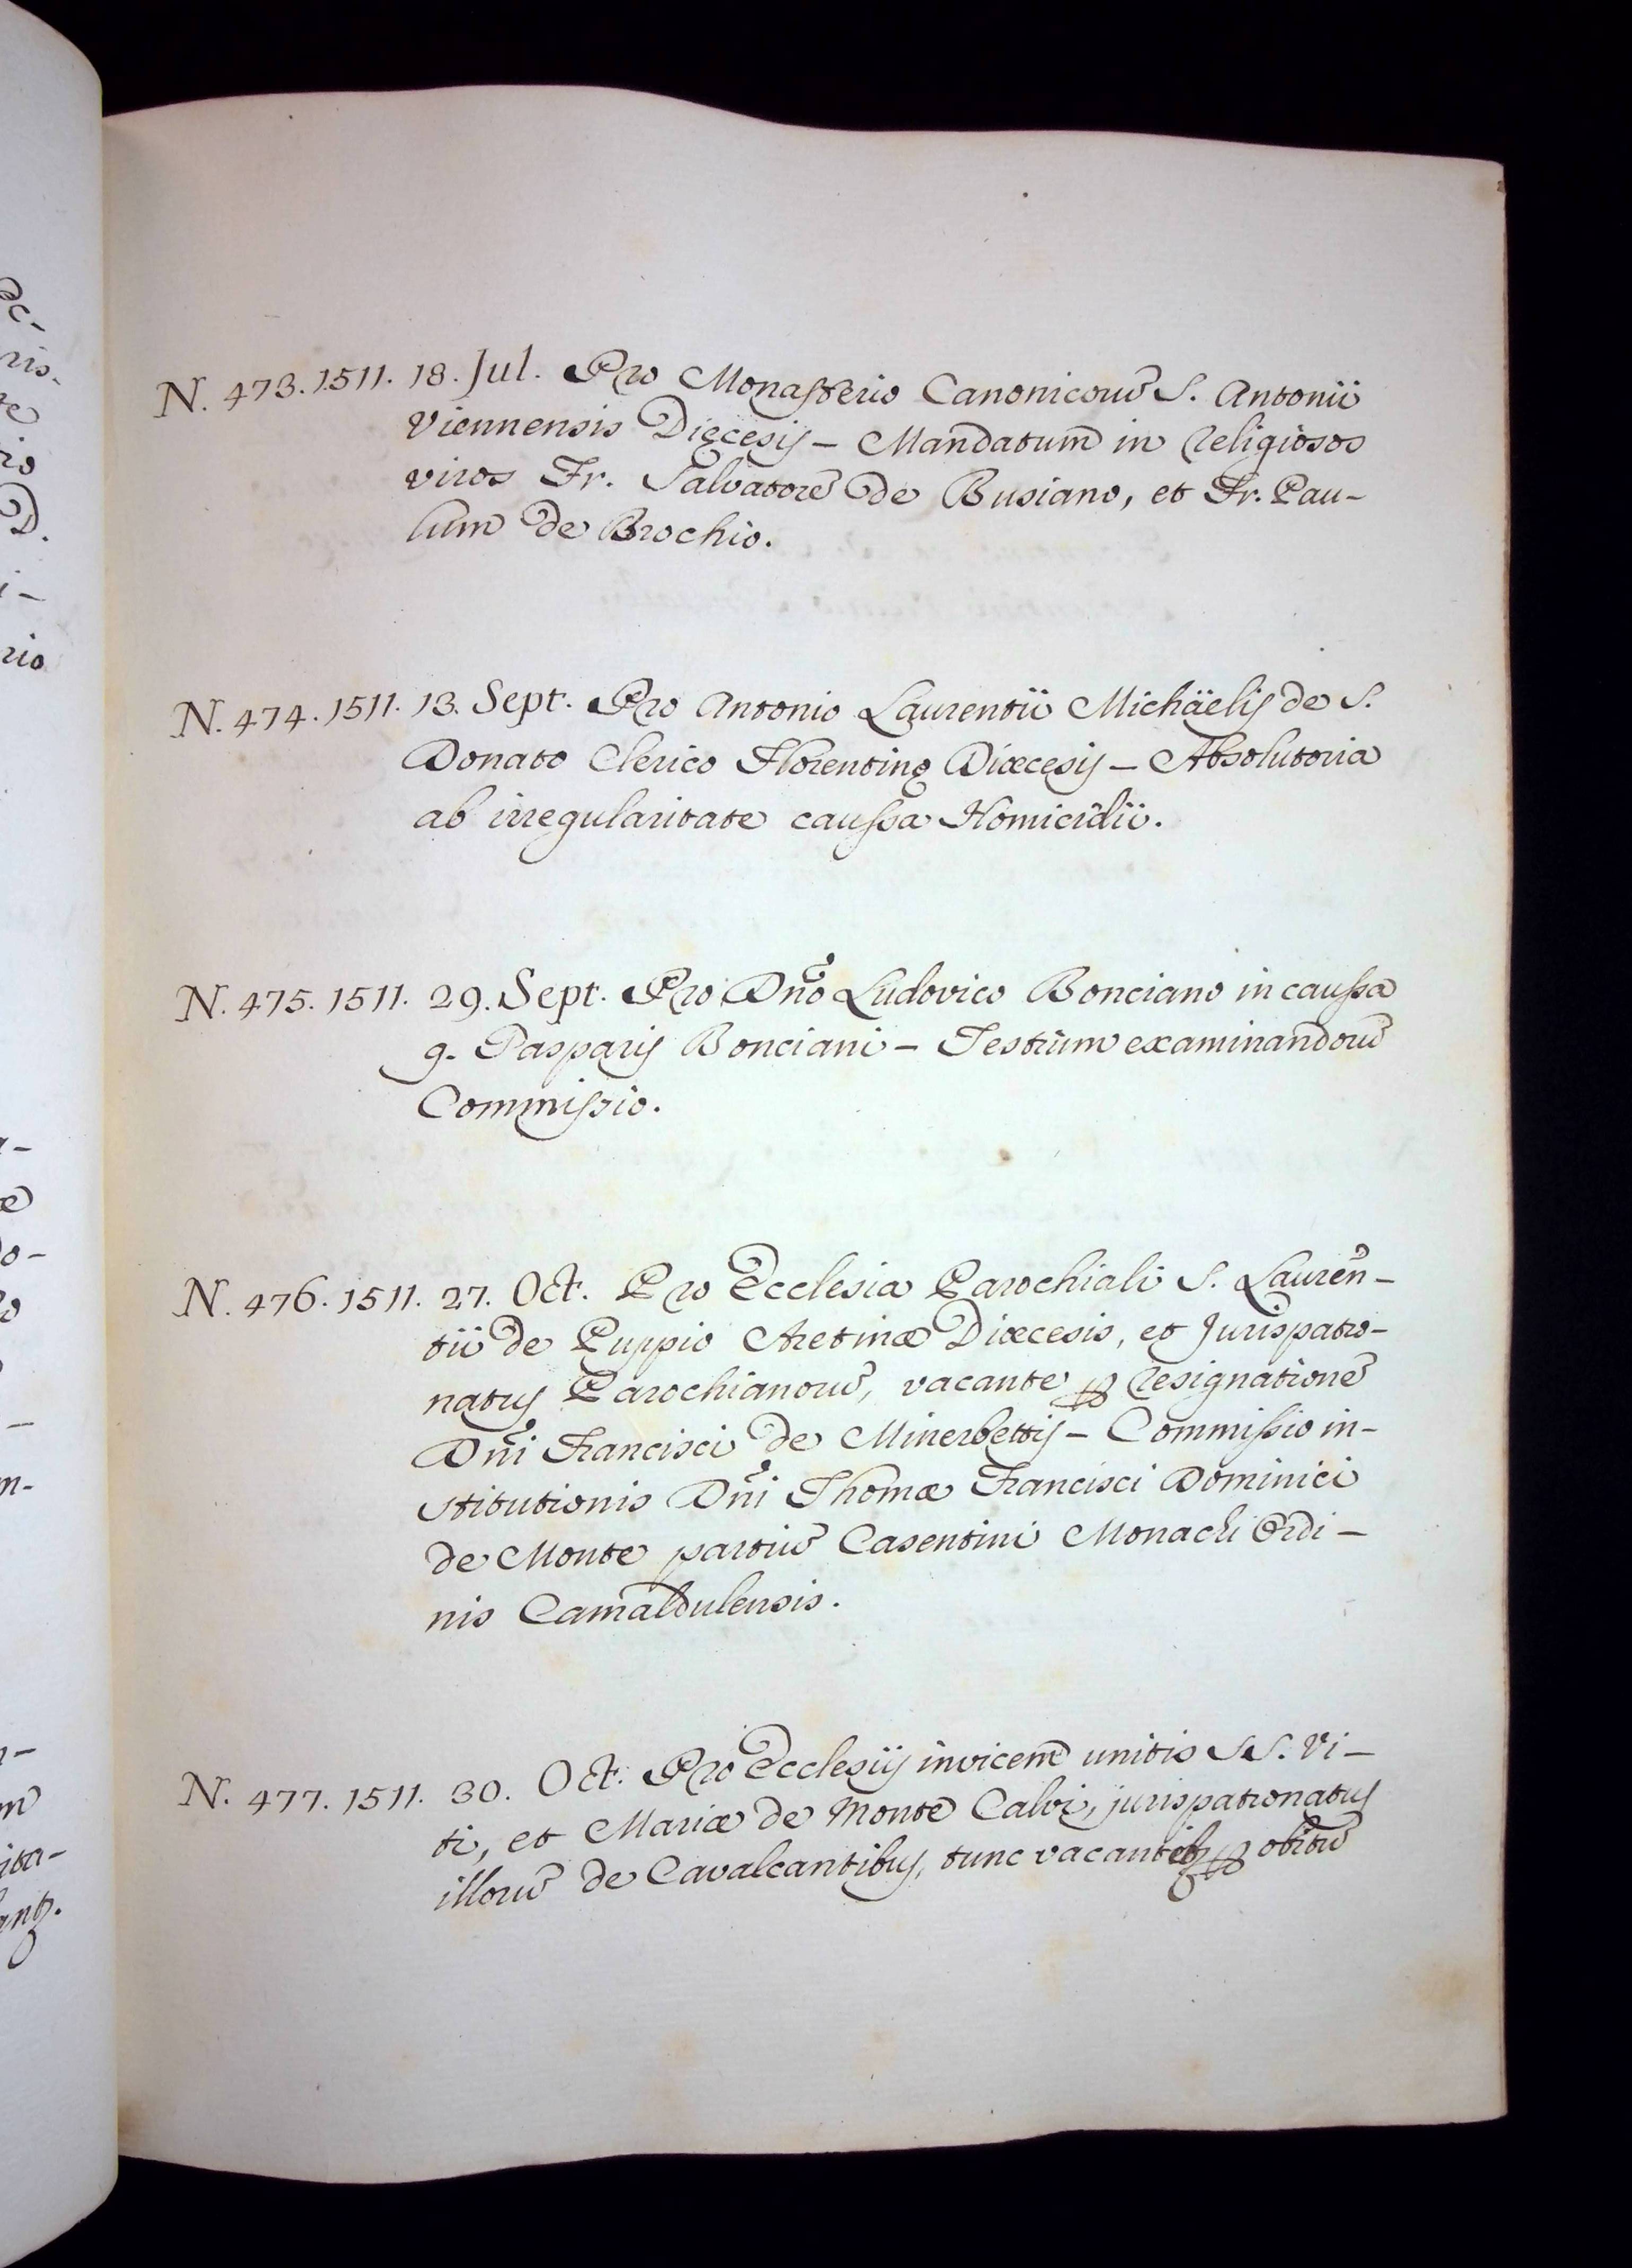 N. 473. 1511. 18. Jul. Pro Monasterio Canonicorũ S. Antonii
Viennensis Dięcesis – Mandatum in Religiosos
viros Fr. Salvatorẽ de Busiano, et Fr. Pau-
lum de Brochio.
N. 474. 1511. 13. Sept. Pro Antonio Laurentii Michäelis de S.
Donato Clerico Florentinę Diœcesis – Absolutoria
ab irregularitate caussa Homicidii.
N. 475. 1511. 29. Sept. Pro Dño Ludovico Bonciano in caussa
q. Gasparis Bonciani – Testium examinandorũ
Commissio.
N. 476. 1511. 27. Oct. Pro Ecclesia Parochiali S. Lauren̄-
tii de Puppio Aretinæ Diœcesis, et Jurispatro-
natus Parochianorũ, vacante ꝑ resignationẽ
Dñi Francisci de Minerbettis – Commissio in-
stitutionis Dñi Thomæ Francisci Dominici
de Monte partiũ Casentini Monachi Ordi-
nis Camaldulensis.
N. 477. 1511. 30. Oct. Pro Ecclesiis invicem unitis SS. Vi-
ti, et Mariæ de Monte Calvi, jurispatronatus
illorũ de Cavalcantibus, tunc vacantibꝫ ꝑ obitũ